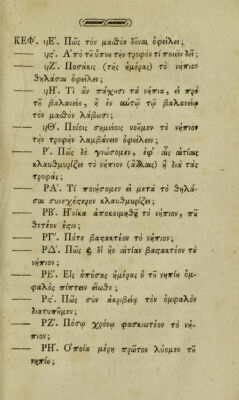 ΚΕΦ'. ϟΕ'. Πῶς τὸν μασθὸν δοῦναι ὀφείλει;
—— ϟς'. Ἀπὸ τῦ ὕπνυ τὴν τροφὸν τί ποιεῖν δεῖ;
—— ϟΖ'. Ποσάκις (τῆς ἡμέρας) τὸ νήπιον
θηλάσαι ὀφείλει;
—— ϟΗ'. Τί ἂν πάσχῃσι τὰ νήπια, εἰ πρὸ
τῦ βαλανείυ, ἢ ἐν αὐτῷ τῷ βαλανείῳ
τὸν μασθὸν λάβωσι;
—— ϟΘ'. Ποίοις σημείοις νοῦμεν τὸ νήπιον
τὴν τροφὴν λαμβάνειν ὀφείλειν;
—— Ρ'. Πῶς δὲ γνώσομεν, ἐφ' ἧς αἰτίας
κλαυθμυρίζει τὸ νήπιον (ἄλλως) ἢ διὰ τὰς
τροφάς;
—— ΡΑ'. Τί ποιήσομεν εἰ μετὰ τὸ θηλά-
σαι συνεχέςερον κλαυθμυρίζει;
—— ΡΒ'. Ἡνίκα ἀποκοιμηθῇ τὸ νήπιον, πῦ
θετέον ἐςιν;
—— ΡΓ'. Πότε βαςακτέον τὸ νήπιον;
—— ΡΔ'. Πῶς ἢ δι' ἣν αἰτίαν βαςακτέον τὸ
νήπιον;
—— ΡΕ'. Εἰς ὁπόσας ἡμέρας ὁ τῦ νηπίυ ὀμ-
φαλὸς πίπτειν εἴωθε;
—— Ρς'. Πῶς σὺν ἀκριβείᾳ τὸν ὀμφαλὸν
διατυπῦμεν;
—— ΡΖ'. Πόσῳ χρόνῳ φασκιωτέον τὸ νή-
πιον;
—— ΡΗ'. Ὁποῖα μέρη πρῶτον λύομεν τῦ
νηπίυ;